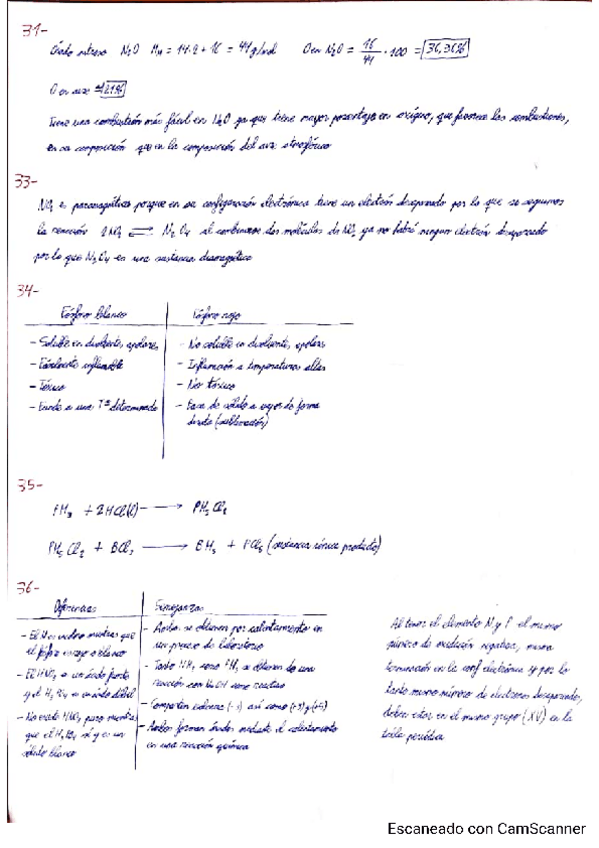 31-
Óxido nitroso N₂O Mm = 14·2 + 16 = 44 g/mol O en N₂O = 16/44 · 100 = 36,36%
O en aire = 21%
Tiene una combustión más fácil en N₂O ya que tiene mayor porcentaje en oxígeno, que favorece las combustiones,
en su composición que en la composición del aire atmosférico
33-
NO₂ es paramagnético porque en su configuración electrónica tiene un electrón desapareado por lo que se seguimos
la reacción 2NO₂ ⇌ N₂O₄ al combinarse dos moléculas de NO₂ ya no habrá ningún electrón desapareado
por lo que N₂O₄ es una sustancia diamagnética
34-
Fósforo blanco Fósforo rojo
- Soluble en disolventes apolares - No soluble en disolventes apolares
- Fácilmente inflamable - Inflamación a temperaturas altas
- Tóxico - No tóxico
- Funde a una Tª determinada - Pasa de sólido a vapor de forma
directa (sublimación)
35-
PH₃ + 2HCl(l) ⟶
+ BCl₃ ⟶ BH₃ + (sustancia iónica producto)
36-
Diferencias
- El N es incoloro mientras que
el fósforo es rojo o blanco
- El HNO₃ es un ácido fuerte
y el H₃PO₄ es un ácido débil
- No existe puro mientras
que el H₃PO₄ sí y es un
sólido blanco
Semejanzas
- Ambos se obtienen por calentamiento en
un proceso de laboratorio
- Tanto NH₃ como PH₃ se obtienen de una
reacción con como reactivo
- Comparten valencia (-3) así como (+3) y (+5)
- Ambos forman ácidos mediante el calentamiento
en una reacción química
Al tener el elemento N y P el mismo
número de oxidación negativo, misma
terminación en la conf electrónica y por lo
tanto mismo número de electrones desapareados,
deben estar en el mismo grupo (XV) en la
tabla periódica
Escaneado con CamScanner